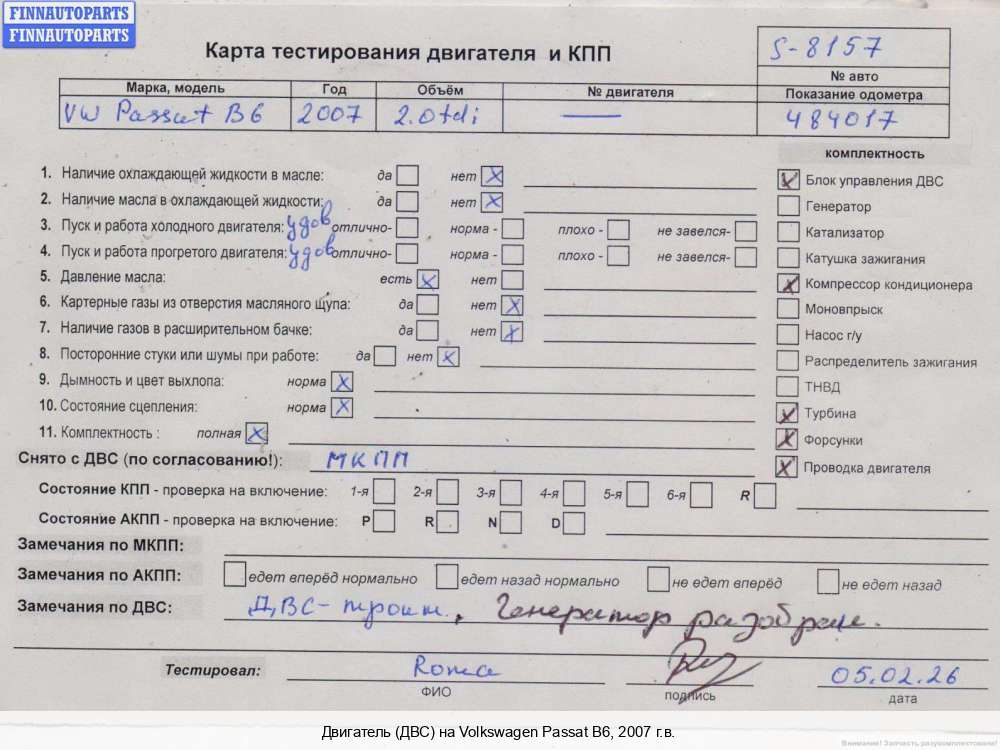 FINNAUTOPARTS
FINNAUTOPARTS
Карта тестирования двигателя и КПП
S-8157
№ авто
Марка, модель Год Объём № двигателя Показание одометра
VW Passat B6 2007 2.0tdi — 484017
комплектность
1. Наличие охлаждающей жидкости в масле: да нет X
Блок управления ДВС
2. Наличие масла в охлаждающей жидкости: да нет X
Генератор
3. Пуск и работа холодного двигателя: удов отлично- норма - плохо - не завелся-
Катализатор
4. Пуск и работа прогретого двигателя: удов отлично- норма - плохо - не завелся-
Катушка зажигания
5. Давление масла: есть X нет
Компрессор кондиционера
6. Картерные газы из отверстия масляного щупа: да нет X
Моновпрыск
7. Наличие газов в расширительном бачке: да нет X
Насос г/у
8. Посторонние стуки или шумы при работе: да нет X
Распределитель зажигания
9. Дымность и цвет выхлопа: норма X
ТНВД
10. Состояние сцепления: норма X
Турбина
11. Комплектность : полная X
Форсунки
Снято с ДВС (по согласованию!): МКПП
Проводка двигателя
Состояние КПП - проверка на включение: 1-я 2-я 3-я 4-я 5-я 6-я R
Состояние АКПП - проверка на включение: P R N D
Замечания по МКПП:
Замечания по АКПП: едет вперёд нормально едет назад нормально не едет вперёд не едет назад
Замечания по ДВС: ДВС- троит. , Генератор разобран.
Тестировал: Roma 05.02.26
ФИО подпись дата
Двигатель (ДВС) на Volkswagen Passat B6, 2007 г.в.
Внимание! Запчасть разукомплектована!